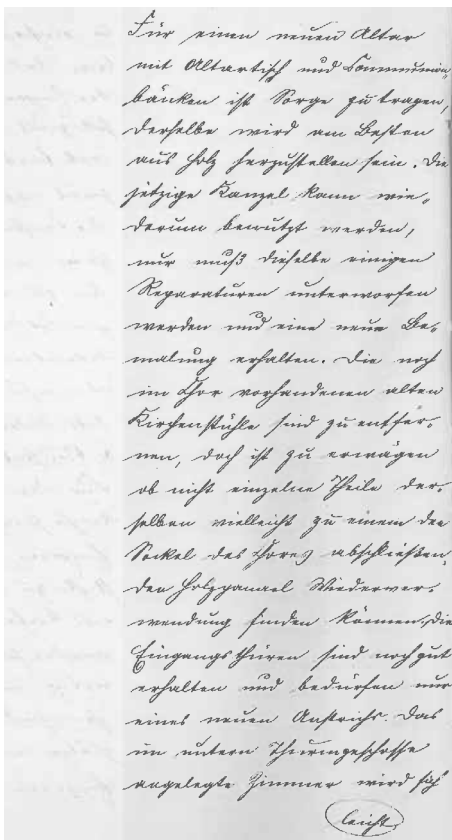 Für einen neuen Altar
mit Altartisch und Communion-
bänken ist Sorge zu tragen,
derselbe wird am Besten
aus Holz herzustellen sein. Die
jetzige Kanzel kann wie-
derum benutzt werden,
nur muß dieselbe einigen
Reparaturen unterworfen
werden und eine neue Be-
malung erhalten. Die noch
im Chor vorhandenen alten
Kirchenstühle sind zu entfer-
nen, doch ist zu erwägen
ob nicht einzelne Theile der-
selben vielleicht zu einem den
Sockel des Chores abschließen-
den Holzpaneel Wiederver-
wendung finden können. Die
Eingangsthüren sind noch gut
erhalten und bedürfen nur
eines neuen Anstrichs. Das
im untern Thurmgeschosse
angelegte Zimmer wird sich
leicht